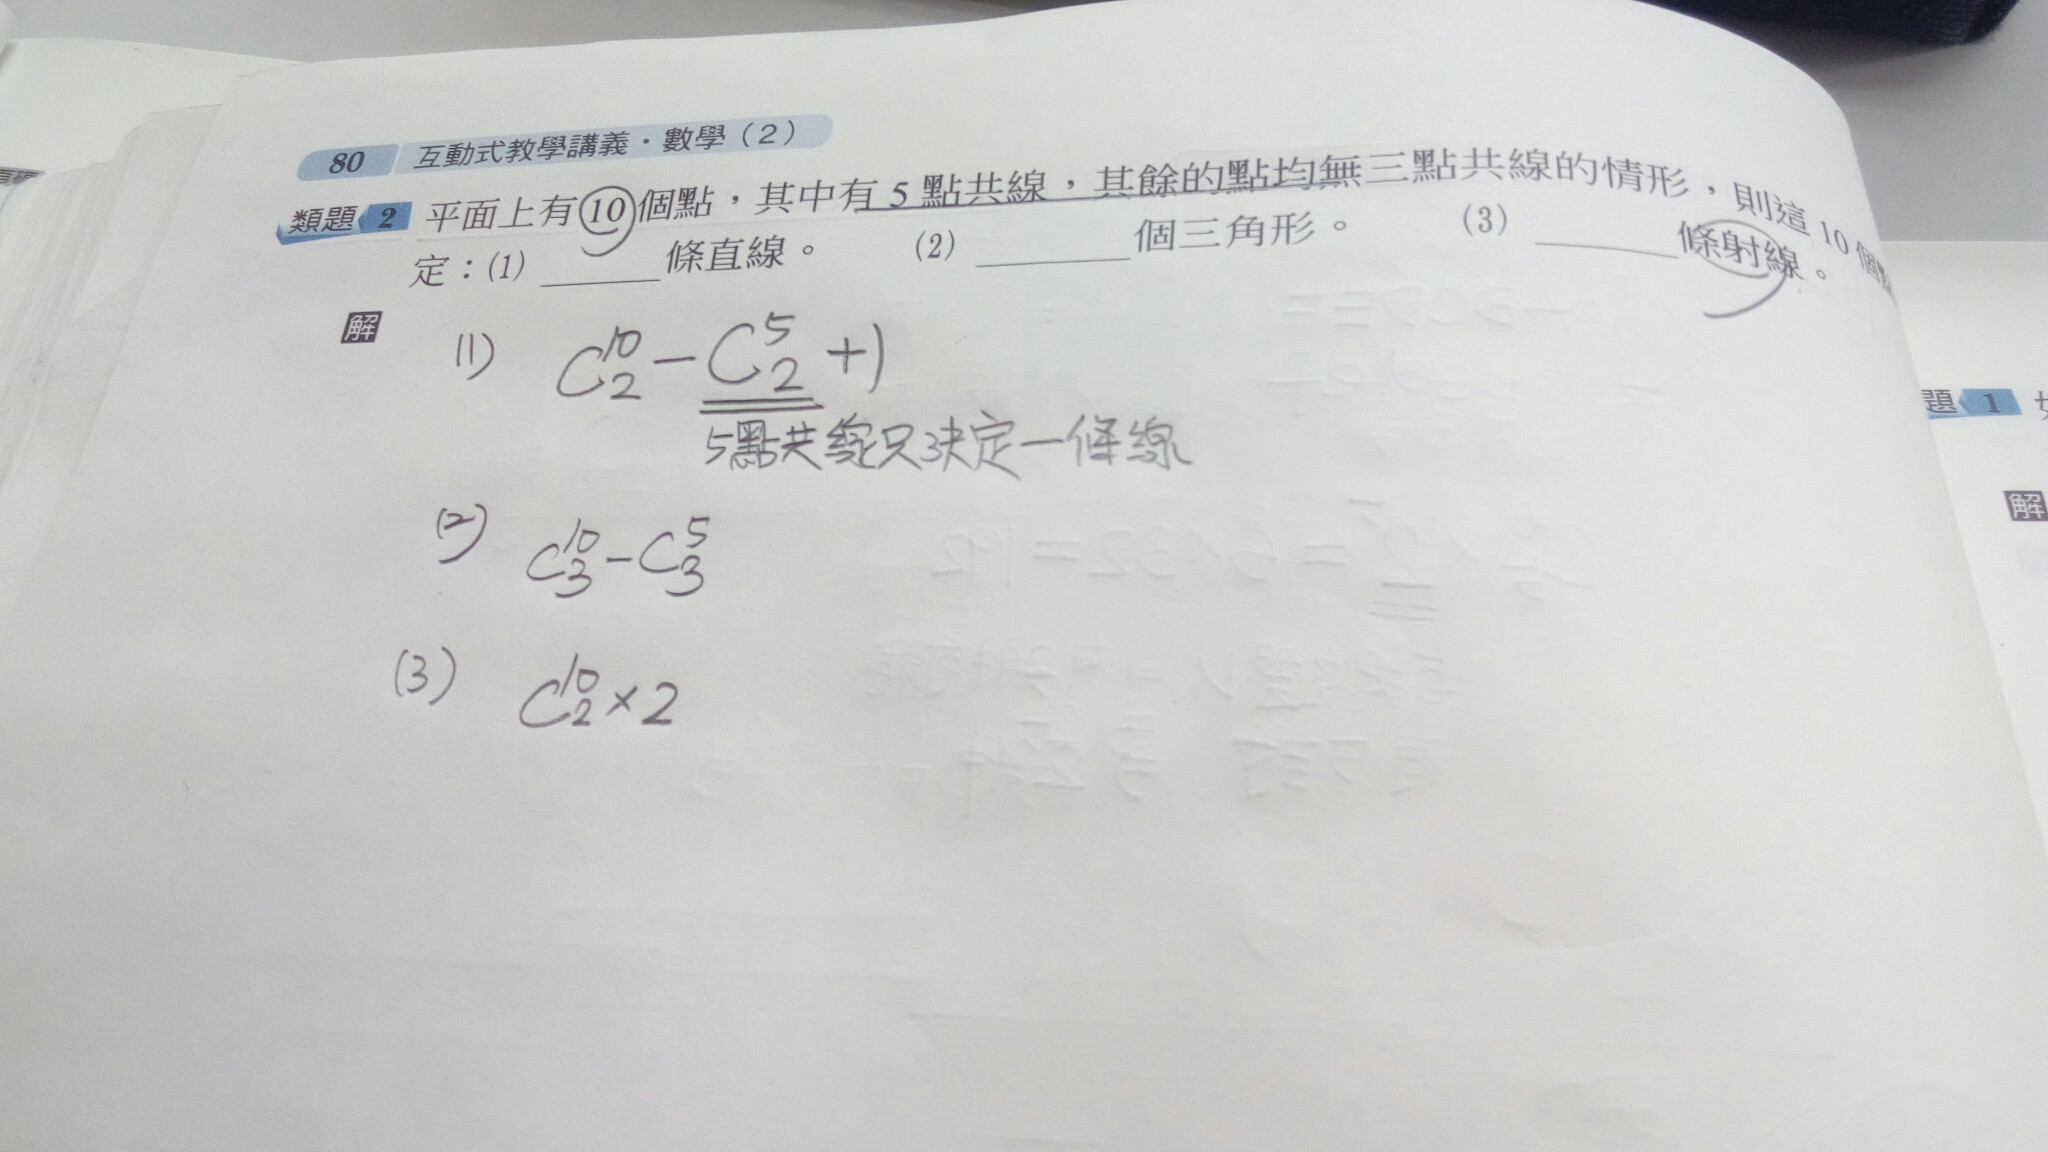 80 互動式教學講義·數學(2)
類題 2 平面上有10個點,其中有5點共線,其餘的點均無三點共線的情形,則這10個
定:(1) ______ 條直線。 (2) ______ 個三角形。 (3) ______ 條射線。
解
(1) C¹⁰₂ - C⁵₂ + 1
5點共線只決定一條線
(2) C¹⁰₃ - C⁵₃
(3) C¹⁰₂ × 2
題 1
解